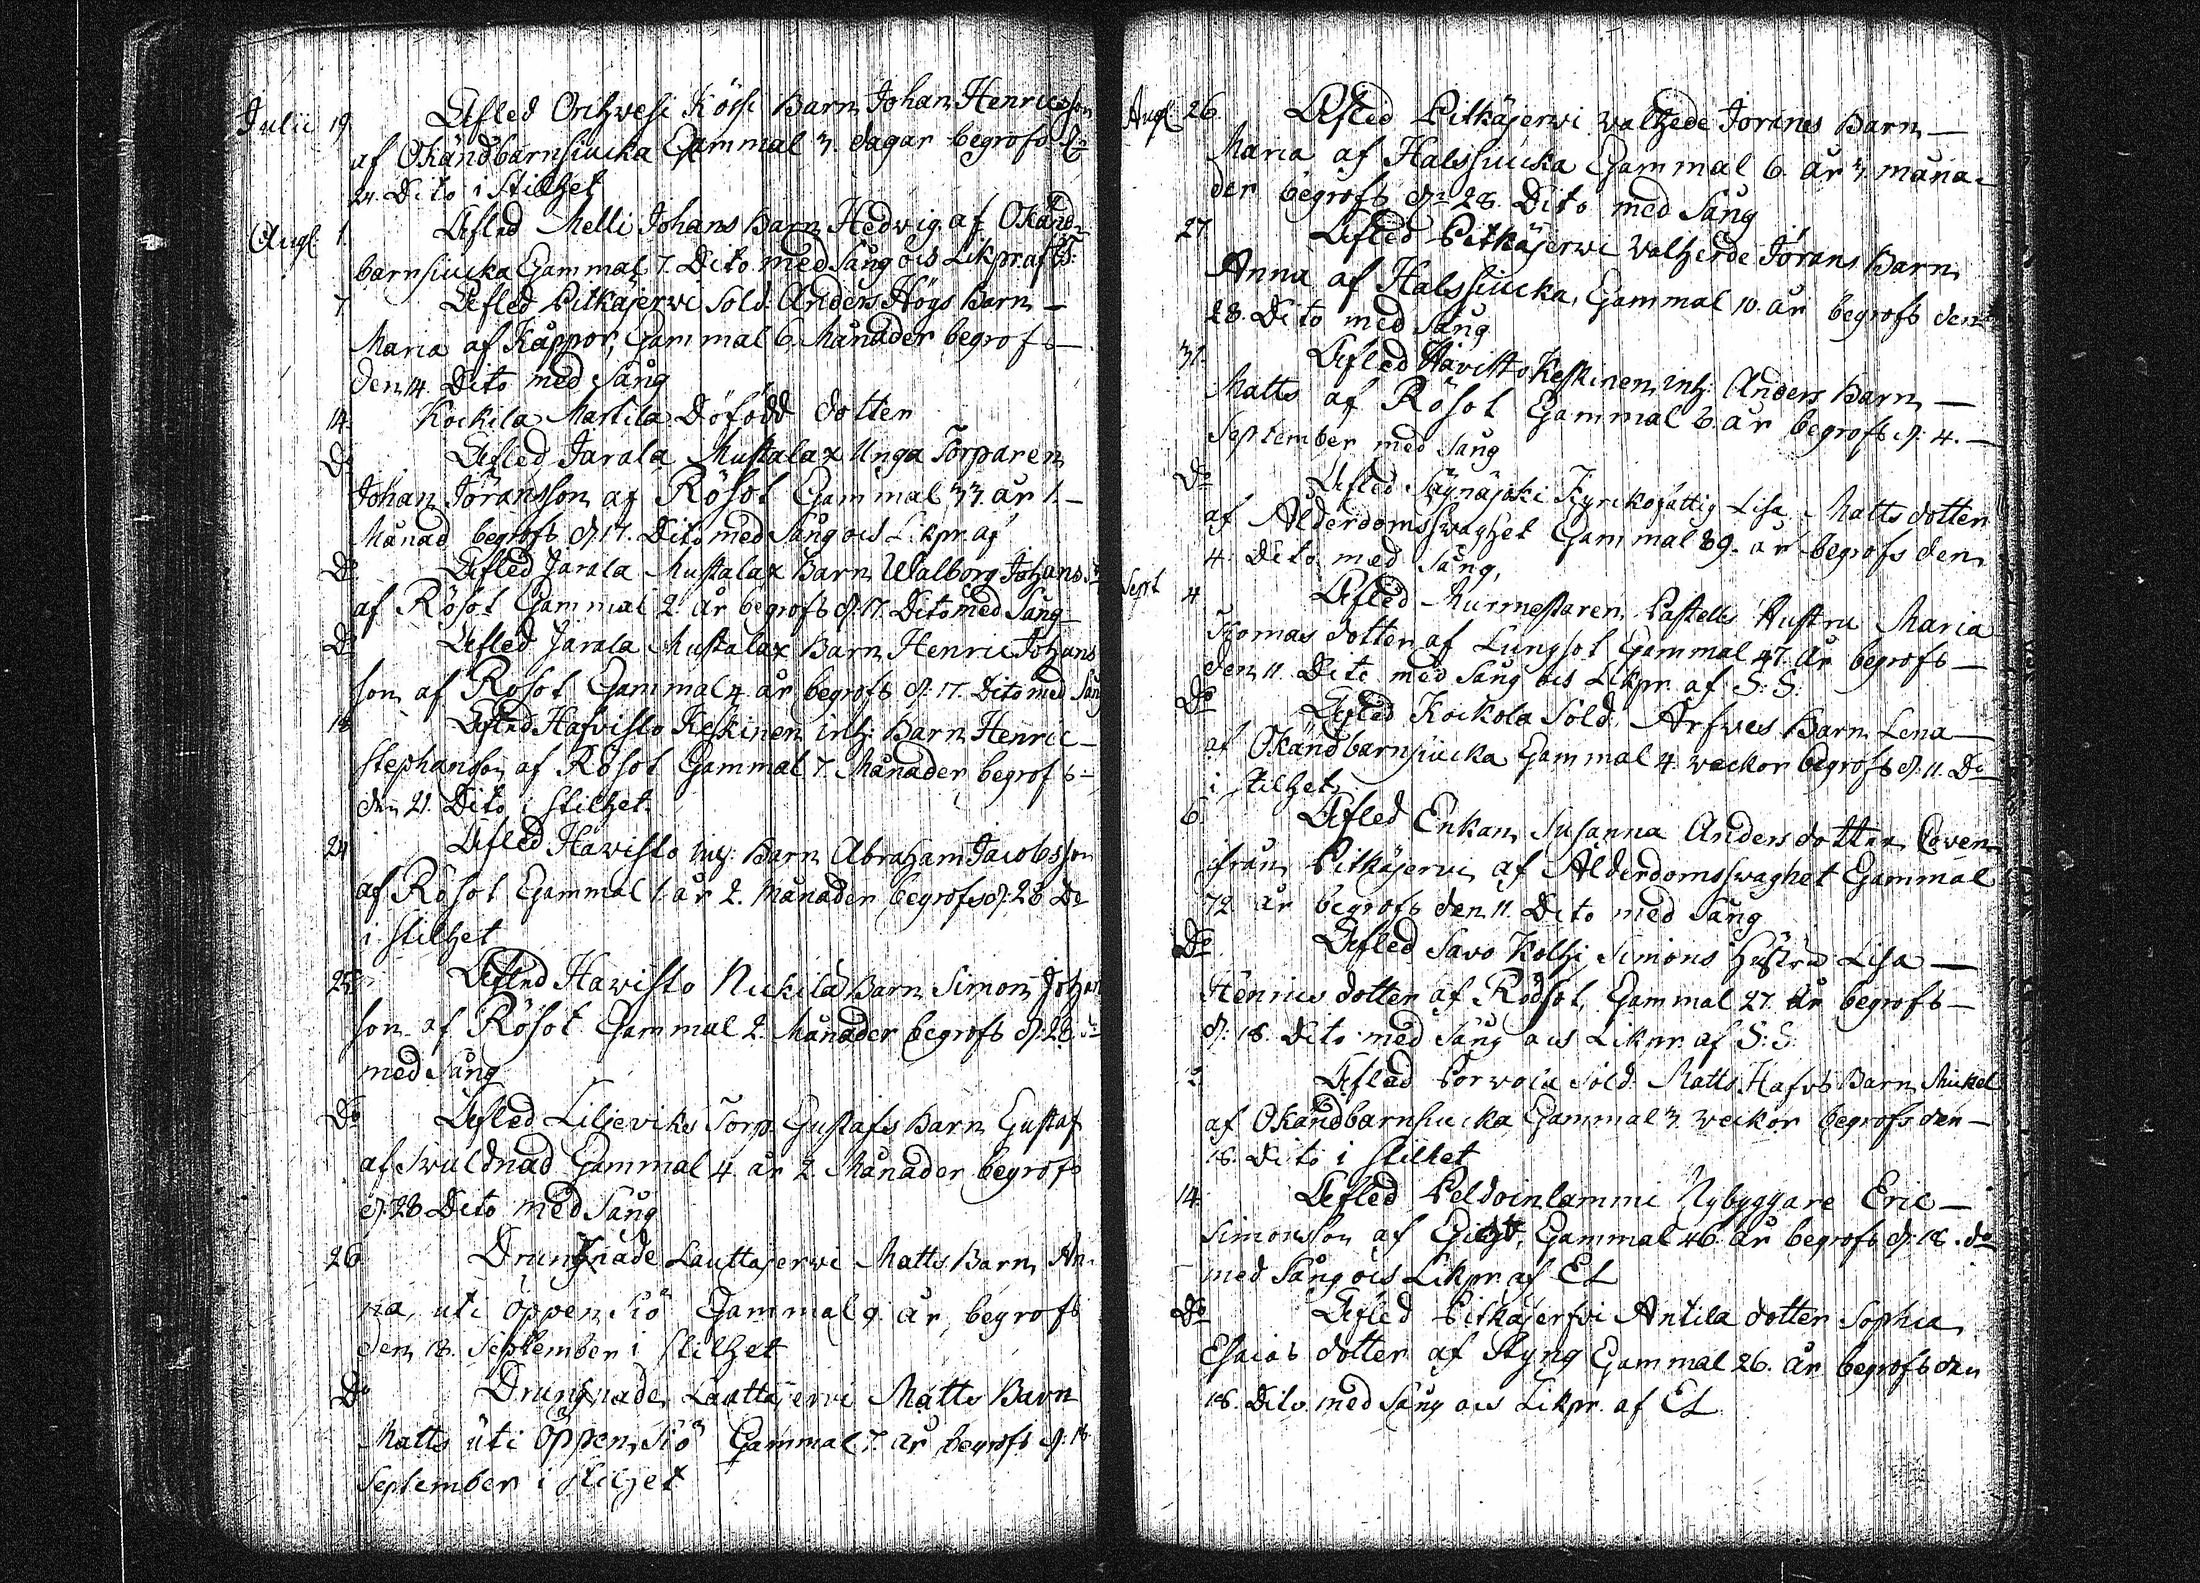 Julii 19 Afled Orihvesi Körsi Barn Johan Henricsson
af Okändbarnsiucka Gammal 3. dagar begrofs d:
24. Dito i Stillhet
Aug: 1. Afled Melli Johans Barn Hedvig af Okänd-
barnsiucka Gammal 7. Dito med Sång ocs Likpr. af
7 Afled Pitkäjerwi Sold. Anders Högs Barn —
Maria af Kåppor, Gammal 6 Månader begrofs —
den 14. Dito med Sång
14. Kockila Marttila Döfödd dotter
Do Afled Jarala Mustalax Unga Torparen
Johan Jöransson af Rösot Gammal 33. år 1. —
Månad begrofs d. 17. Dito med Sång ocs Likpr. af
Do Afled Jarala Mustalax Barn Walborg Johans dr
af Rösot Gammal 2. år begrofs d. 17. Dito med Sång
Do Afled Jarala Mustalax Barn Henric Johans
son af Rosot Gammal 4. år begrofs d: 17. Dito med Sång
18 Afled Hafvisto Keskinen inh: Barn Henric —
Stephanson af Rösot Gammal 7. Månader begrofs —
den 21. Dito i stilhet.
24 Afled Hävisto inh: Barn Abraham Jacobsson
af Rösot Gammal 1. år 2. månader begrofs d: 28 Do
i stilhet
25. Afled Hawisto Nickilä Barn Simon Johan
son af Rösot Gammal 2. Månader begrofs d: 28. do
med Sång
Do Afled Liljeviks Torp. Gustafs Barn Gustaf
af Swuldnad Gammal 4. år 2. Månader begrofs
d: 28 Dito med Sång
26 Drungnade Lauttajerwi Matts Barn An-
na, uti öppen Siö Gammal 9. år, begrofs
den 18. September i stilhet
Do Drungnade Lauttajerwi Matts Barn
Matts uti öppen Siö Gammal 7. år begrofs d: 18.
September i stilhet
Aug: 26. Afled Pitkäjerwi valherde Jörans Barn —
Maria af Halssiucka Gammal 6. år 3. måna-
der begrofs dn 28. Dito med Sång
27 Afled Pitkäjerwi Valherde Jörans Barn
Anna af Halssiucka, Gammal 10. år begrofs den
28. Dito med Sång
31. Afled Hävisto Keskinen inh: Anders Barn —
Matts af Rösot Gammal 6. år begrofs d: 4. —
September med Sång
Do Afled Säynäjoki Kyrckofattig Lisa Matts dotter
af Ålderdomsswaghet Gammal 89. år begrofs den
4. Dito med Sång,
Sept 4 Afled Murmestaren Pastells Hustru Maria
Thomas dotter af Lungsot Gammal 47. år begrofs —
den 11. Dito med Sång ocs Likpr. af S: S:
Do Afled Kockola Sold. Arfwes Barn Lena —
af Okändbarnsiucka Gammal 4. veckor begrofs d: 11. Do
i stilhet
6. Afled Enkan Susanna Anders dotter Coven
ifrån Pitkäjerwi af Ålderdomsswaghet Gammal
72 år begrofs den 11. Dito med Sång
Do Afled Savo Kolhi Simons Hustru Lisa —
Henrics dotter af Rödsot, Gammal 27. år begrofs —
d: 18. Dito med Sång ocs Likpr af S: S:
Afled Porvola Sold. Matts Hafvs Barn Mickel
af Okändbarnsiucka Gammal 3. veckor begrofs den —
18. Dito i stilhet
14 Afled Peldoinlammi Nybyggare Eric —
Simonson af Gickt, Gammal 46. år begrofs d: 18. do
med Sång ocs Likpr. af EL
Do Afled Pitkäjerfvi Antila dotter Sophia
Esaias dotter af Styng Gammal 26. år begrofs den
18. Dito med Sång ocs Likpr. af EL